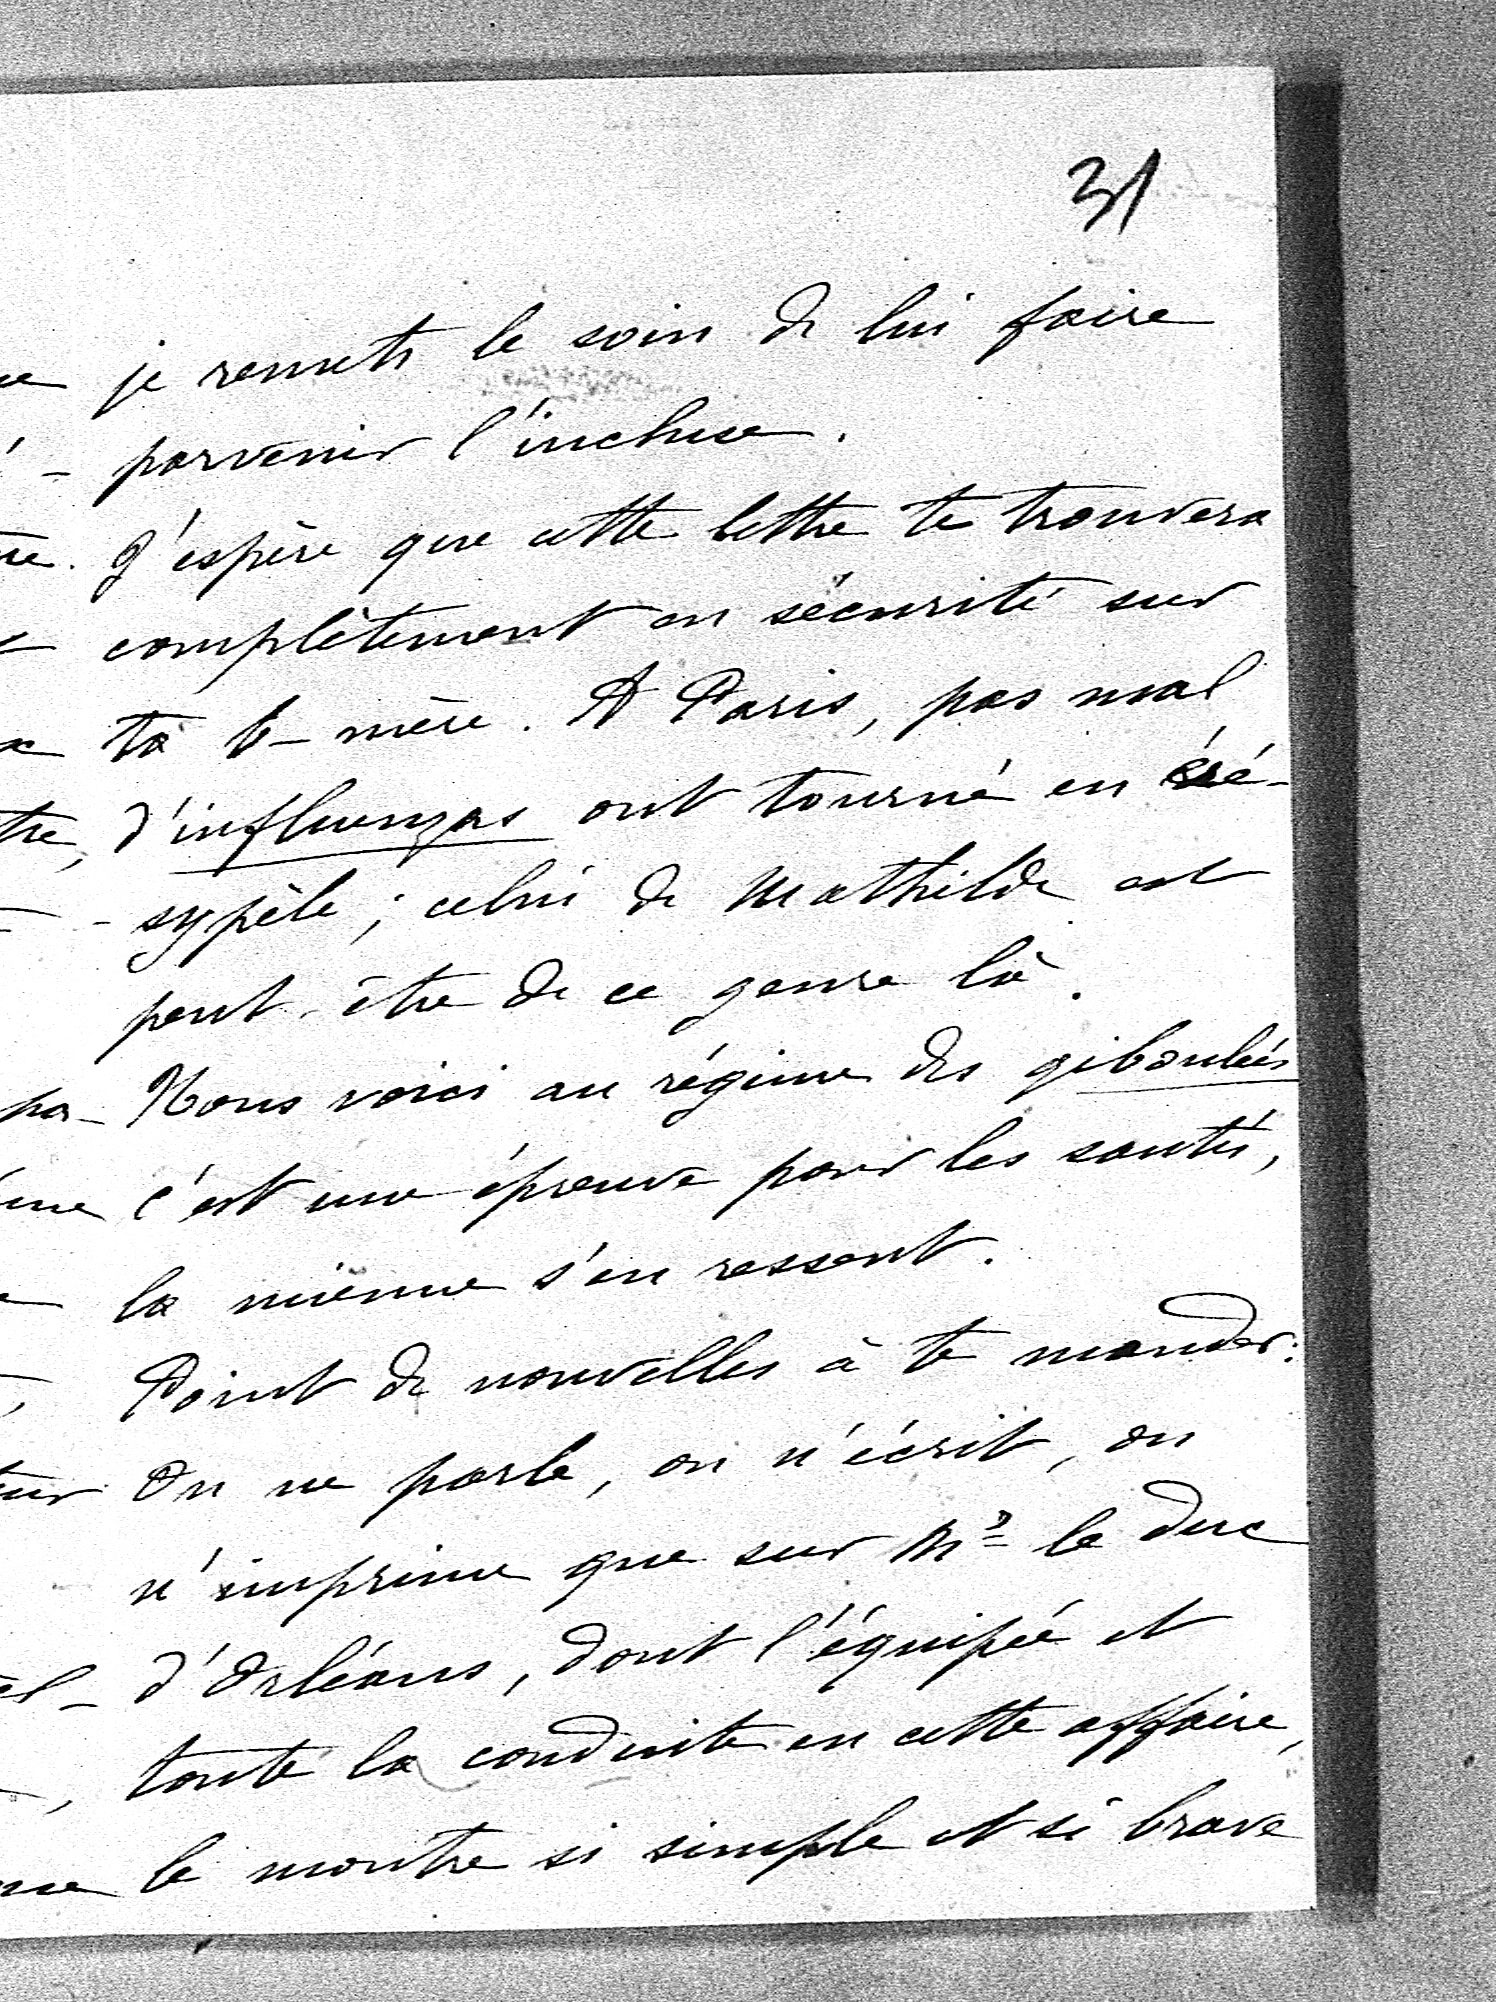 31
je remets le soin de lui faire
parvenir l'incluse.
J'espère que cette lettre te trouvera
complètement en sécurité sur
ta b-mère. A Paris, pas mal
d'influenzas ont tourné en éré-
-sypèle ; celui de Mathilde est
peut-être de ce genre là.
Nous voici au régime des giboulées
c'est une épreuve pour les santés,
la mienne s'en ressent.
Point de nouvelles à te mander :
On ne parle, on n'écrit, on
n'imprime que sur Mr le duc
d'Orléans, dont l'équipée et
toute la conduite en cette affaire,
le montre si simple et si brave